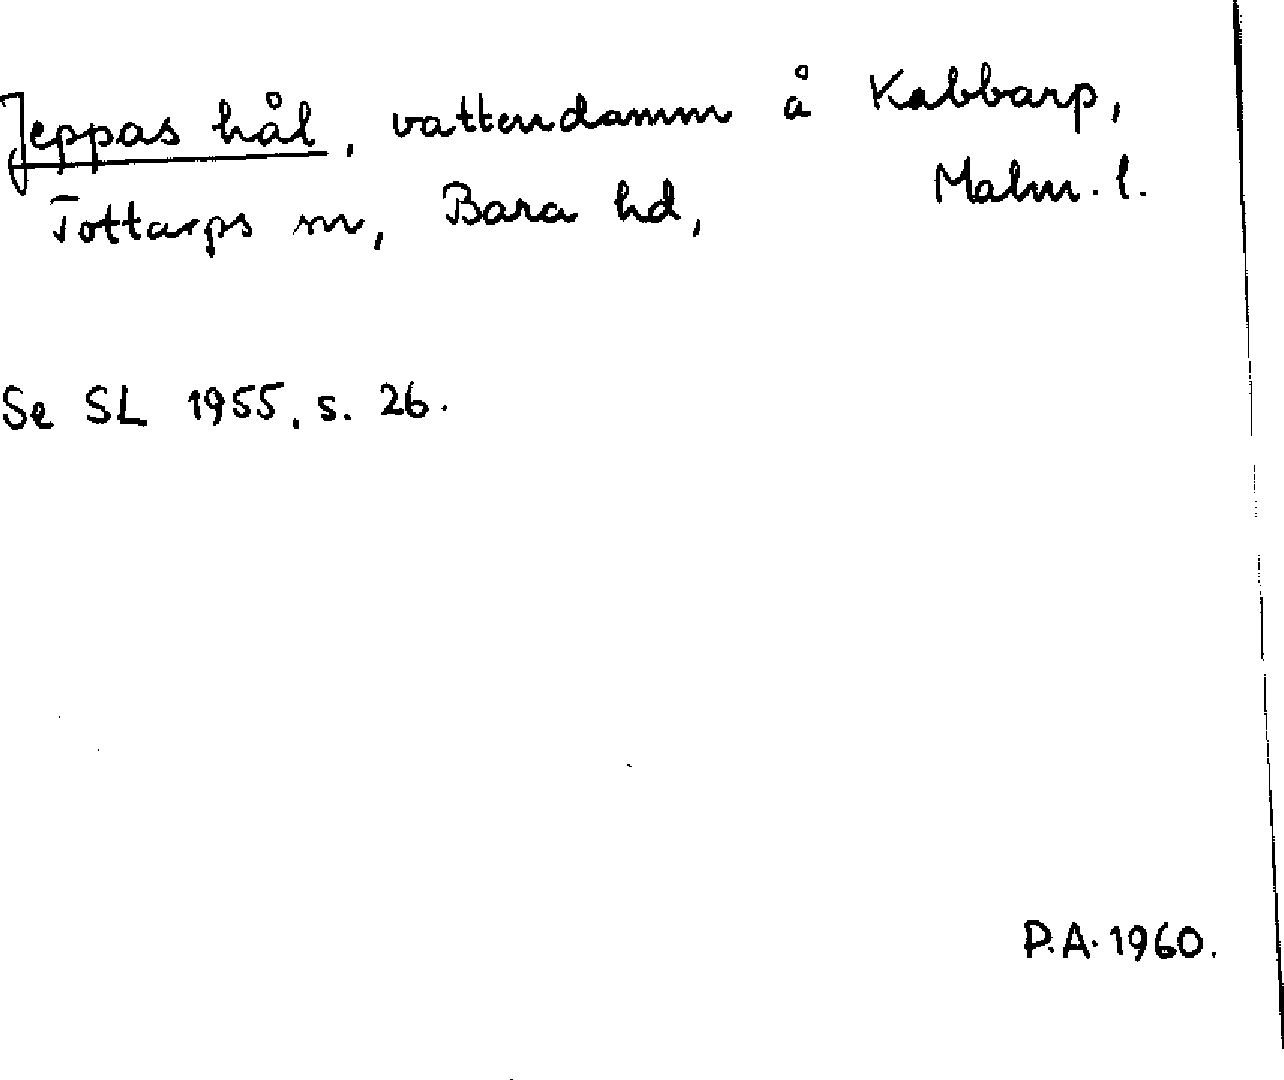 Jeppas hål, vattendamm å Kabbarp,
Tottarps sn, Bara hd, Malm. l.
Se SL 1955, s. 26.
P.A. 1960.